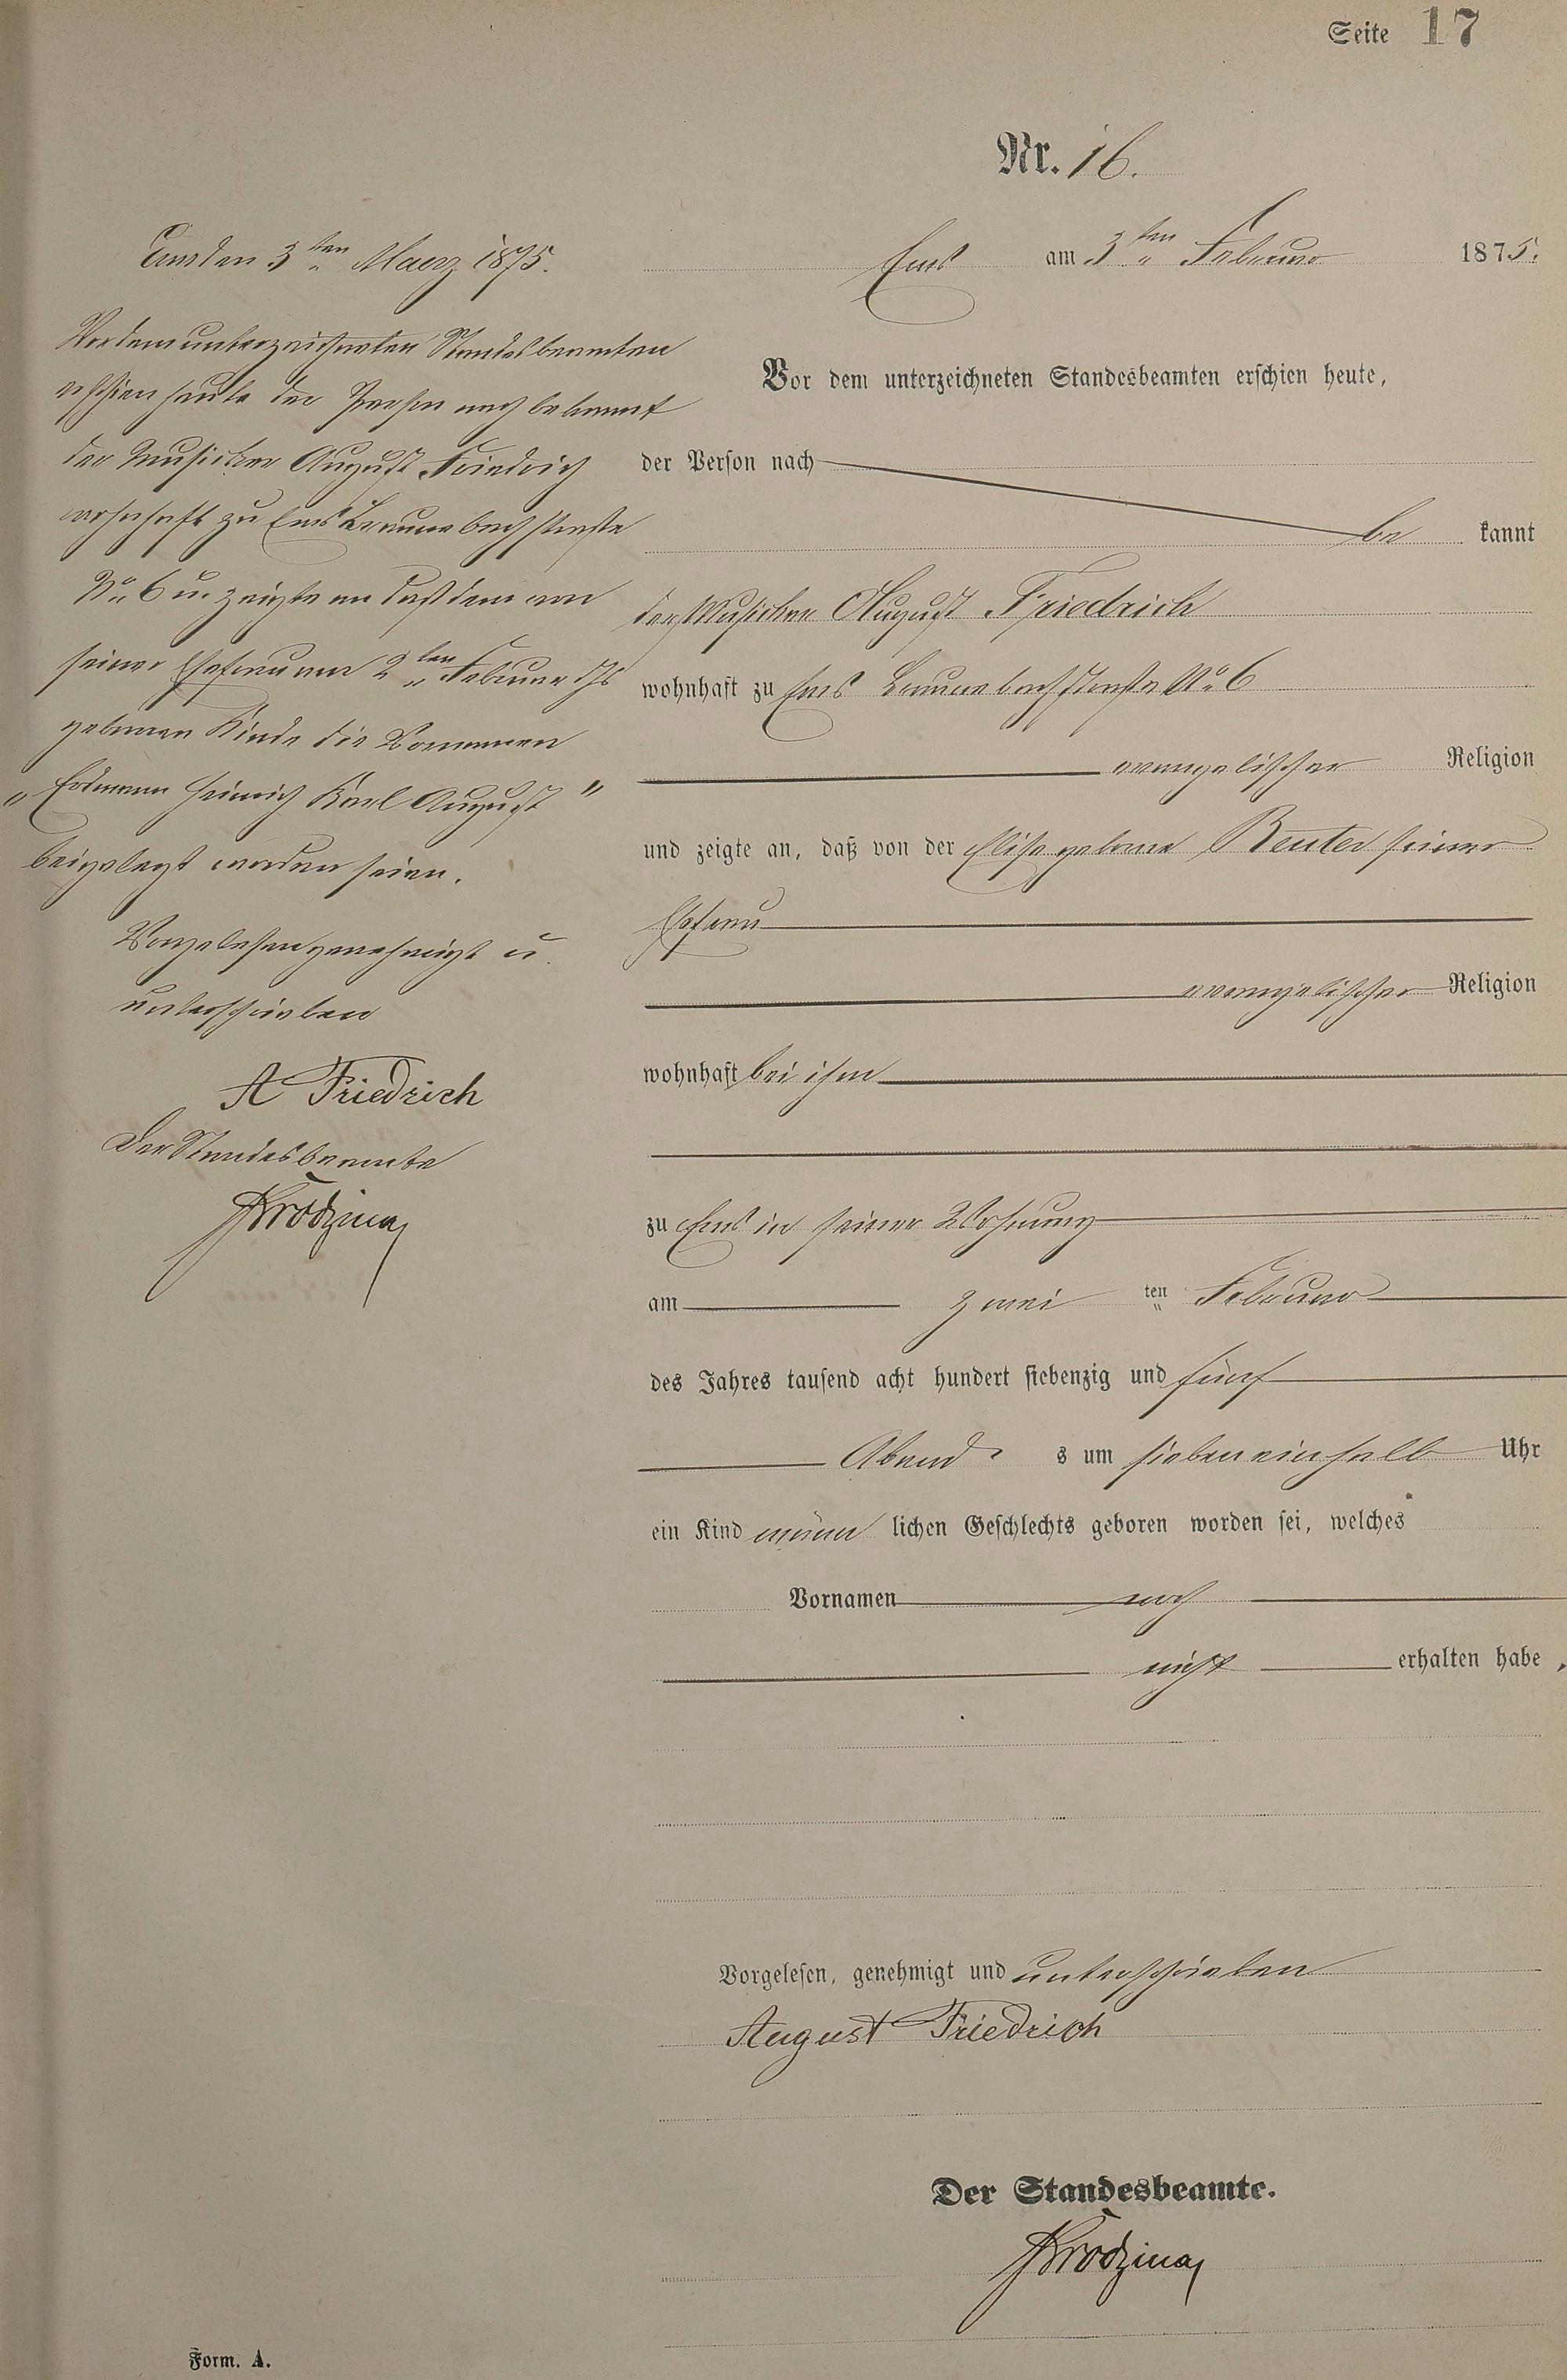 Seite 17
Nr. 16.
Ems am 3ten Februar 1875.
Vor dem unterzeichneten Standesbeamten erschien heute,
der Person nach
be kannt
der Musiker August Friedrich
wohnhaft zu Ems Braunebachstraße No 6
evangelischer Religion
und zeigte an, daß von der Elise geborne Reuter seiner
Ehefrau
evangelischer Religion
wohnhaft bei ihm
zu Ems in seiner Wohnung
am zwei ten Februar
des Jahres tausend acht hundert siebenzig und fünf
Abend s um sieben einhalb Uhr
ein Kind männ lichen Geschlechts geboren worden sei, welches
Vornamen noch
nicht erhalten habe,
Vorgelesen, genehmigt und unterschrieben
August Friedrich
Der Standesbeamte.
Ems den 3ten Maerz 1875.
Vor dem unterzeichneten Standesbeamten
erschien heute der Person nach bekannt
der Musiker August Friedrich
wohnhaft zu Ems Braunebachstraße
No 6 u. zeigte an daß dem von
seiner Ehefrau am 2ten Februar ds Js
gebornen Kinde die Vornamen
"Erdmann Heinrich Karl August"
beigelegt worden seien.
Vorgelesen genehmigt u.
unterschrieben
A Friedrich
Der Standesbeamte
Form. A.